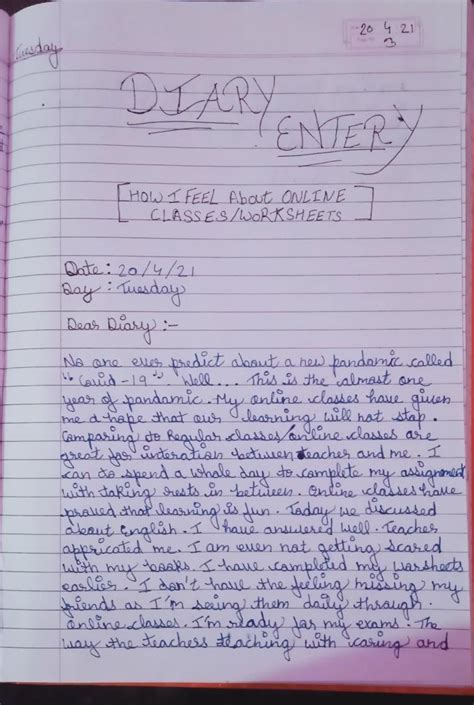 20 4 21
3
Tuesday
DIARY
ENTERY
[HOW I FEEL About ONLINE
CLASSES/WORKSHEETS]
Date : 20/4/21
Day : Tuesday
Dear Diary :-
No one ever predict about a new pandamic called
"Covid-19". Well... This is the almost one
year of pandamic. My online classes have given
me a hope that our learning will not stop.
Comparing to Regular classes/online classes are
great for interation between teacher and me. I
can do spend a whole day to complete my assignment
with taking rests in between. Online classes have
proved that learning is fun. Today we discussed
about English. I have answered well. Teacher
appricated me. I am even not getting scared
with my books. I have completed my worsheets
earlier. I don't have the feeling missing my
friends as I'm seeing them daily through
online classes. I'm ready for my exams. The
way the teachers teaching with caring and